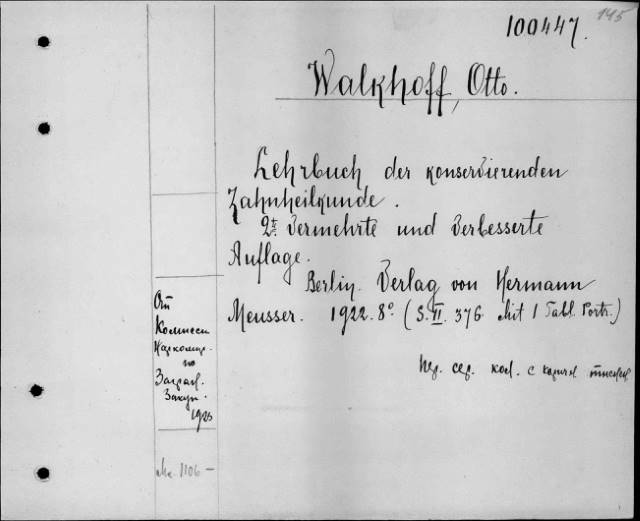 145
100447.
Walkhoff, Otto.
Lehrbuch der konservierenden
Zahnheilkunde.
2te Vermehrte und Verbesserte
Auflage.
Berlin. Verlag von Hermann
Meusser. 1922. 8° (S. VI. 376 Mit 1 Tabl. Portr.)
От
Комисси
по
Загран.
Закуп.
1923
Пер. сер. кол. с
Mk. 1106 –